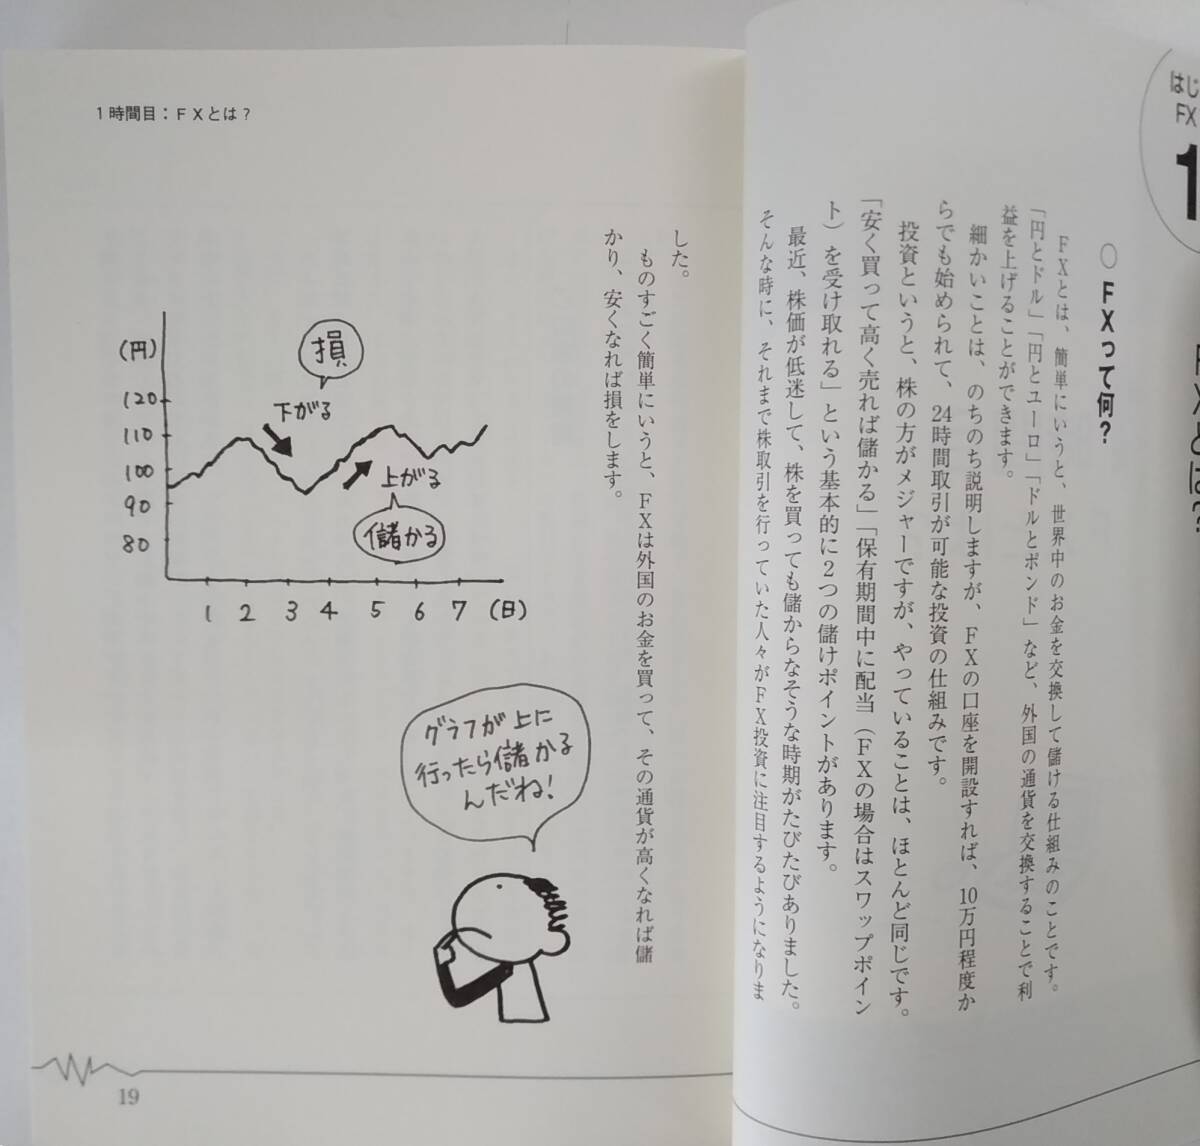 はじ
FX
1
FXとは?
○ FXって何?
FXとは、簡単にいうと、世界中のお金を交換して儲ける仕組みのことです。
「円とドル」「円とユーロ」「ドルとポンド」など、外国の通貨を交換することで利
益を上げることができます。
細かいことは、のちのち説明しますが、FXの口座を開設すれば、10万円程度か
らでも始められて、24時間取引が可能な投資の仕組みです。
投資というと、株の方がメジャーですが、やっていることは、ほとんど同じです。
「安く買って高く売れば儲かる」「保有期間中に配当(FXの場合はスワップポイン
ト)を受け取れる」という基本的に2つの儲けポイントがあります。
最近、株価が低迷して、株を買っても儲からなそうな時期がたびたびありました。
そんな時に、それまで株取引を行っていた人々がFX投資に注目するようになりま
1時間目:FXとは?
した。
ものすごく簡単にいうと、FXは外国のお金を買って、その通貨が高くなれば儲
かり、安くなれば損をします。
(円)
120
110
100
90
80
損
下がる
上がる
儲かる
1 2 3 4 5 6 7 (日)
グラフが上に
行ったら儲かる
んだね!
19